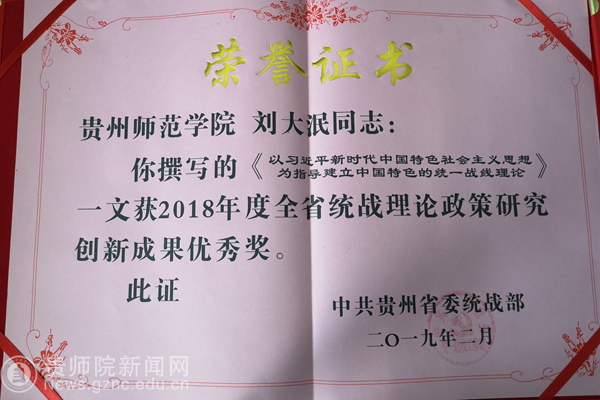 荣誉证书
贵州师范学院 刘大泯同志：
你撰写的《以习近平新时代中国特色社会主义思想
为指导建立中国特色的统一战线理论》
一文获2018年度全省统战理论政策研究
创新成果优秀奖。
此证
中共贵州省委统战部
二〇一九年二月
贵师院新闻网
News.gznc.edu.cn